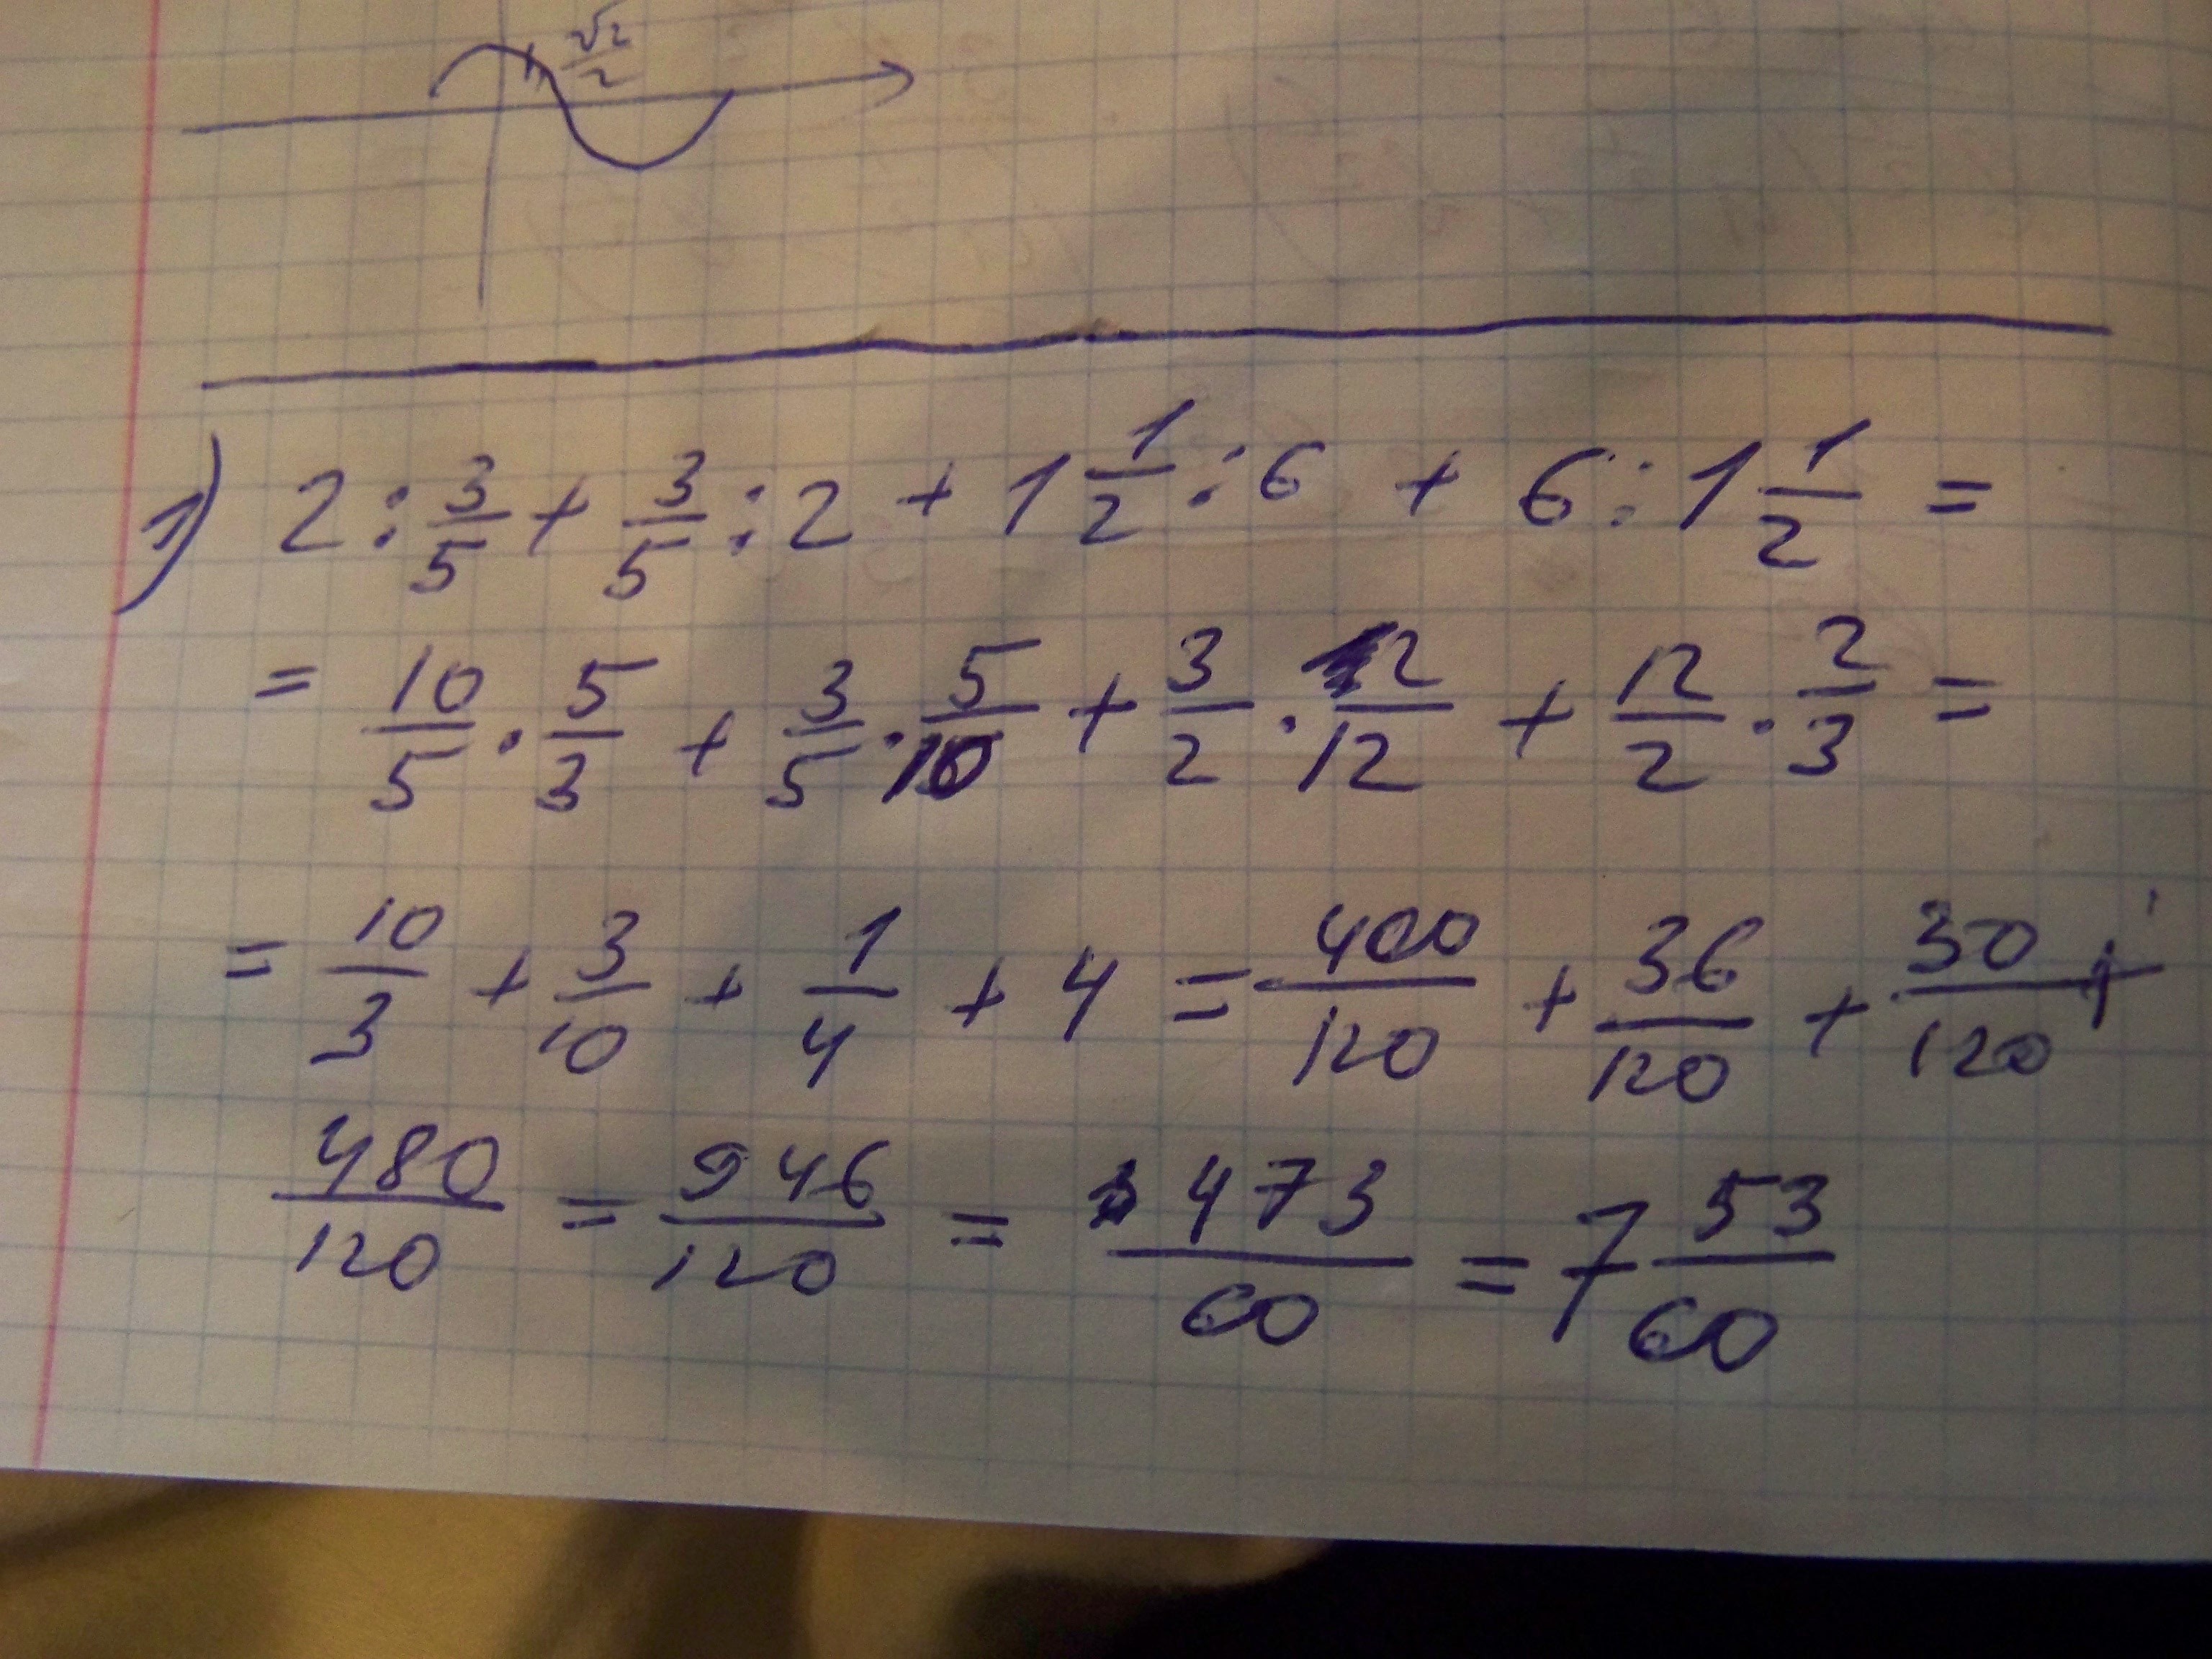 √2/2
1) 2 : 3/5 + 3/5 : 2 + 1 1/2 : 6 + 6 : 1 1/2 =
= 10/5 · 5/3 + 3/5 · 5/10 + 3/2 · 2/12 + 12/2 · 2/3 =
= 10/3 + 3/10 + 1/4 + 4 = 400/120 + 36/120 + 30/120 +
480/120 = 946/120 = 473/60 = 7 53/60